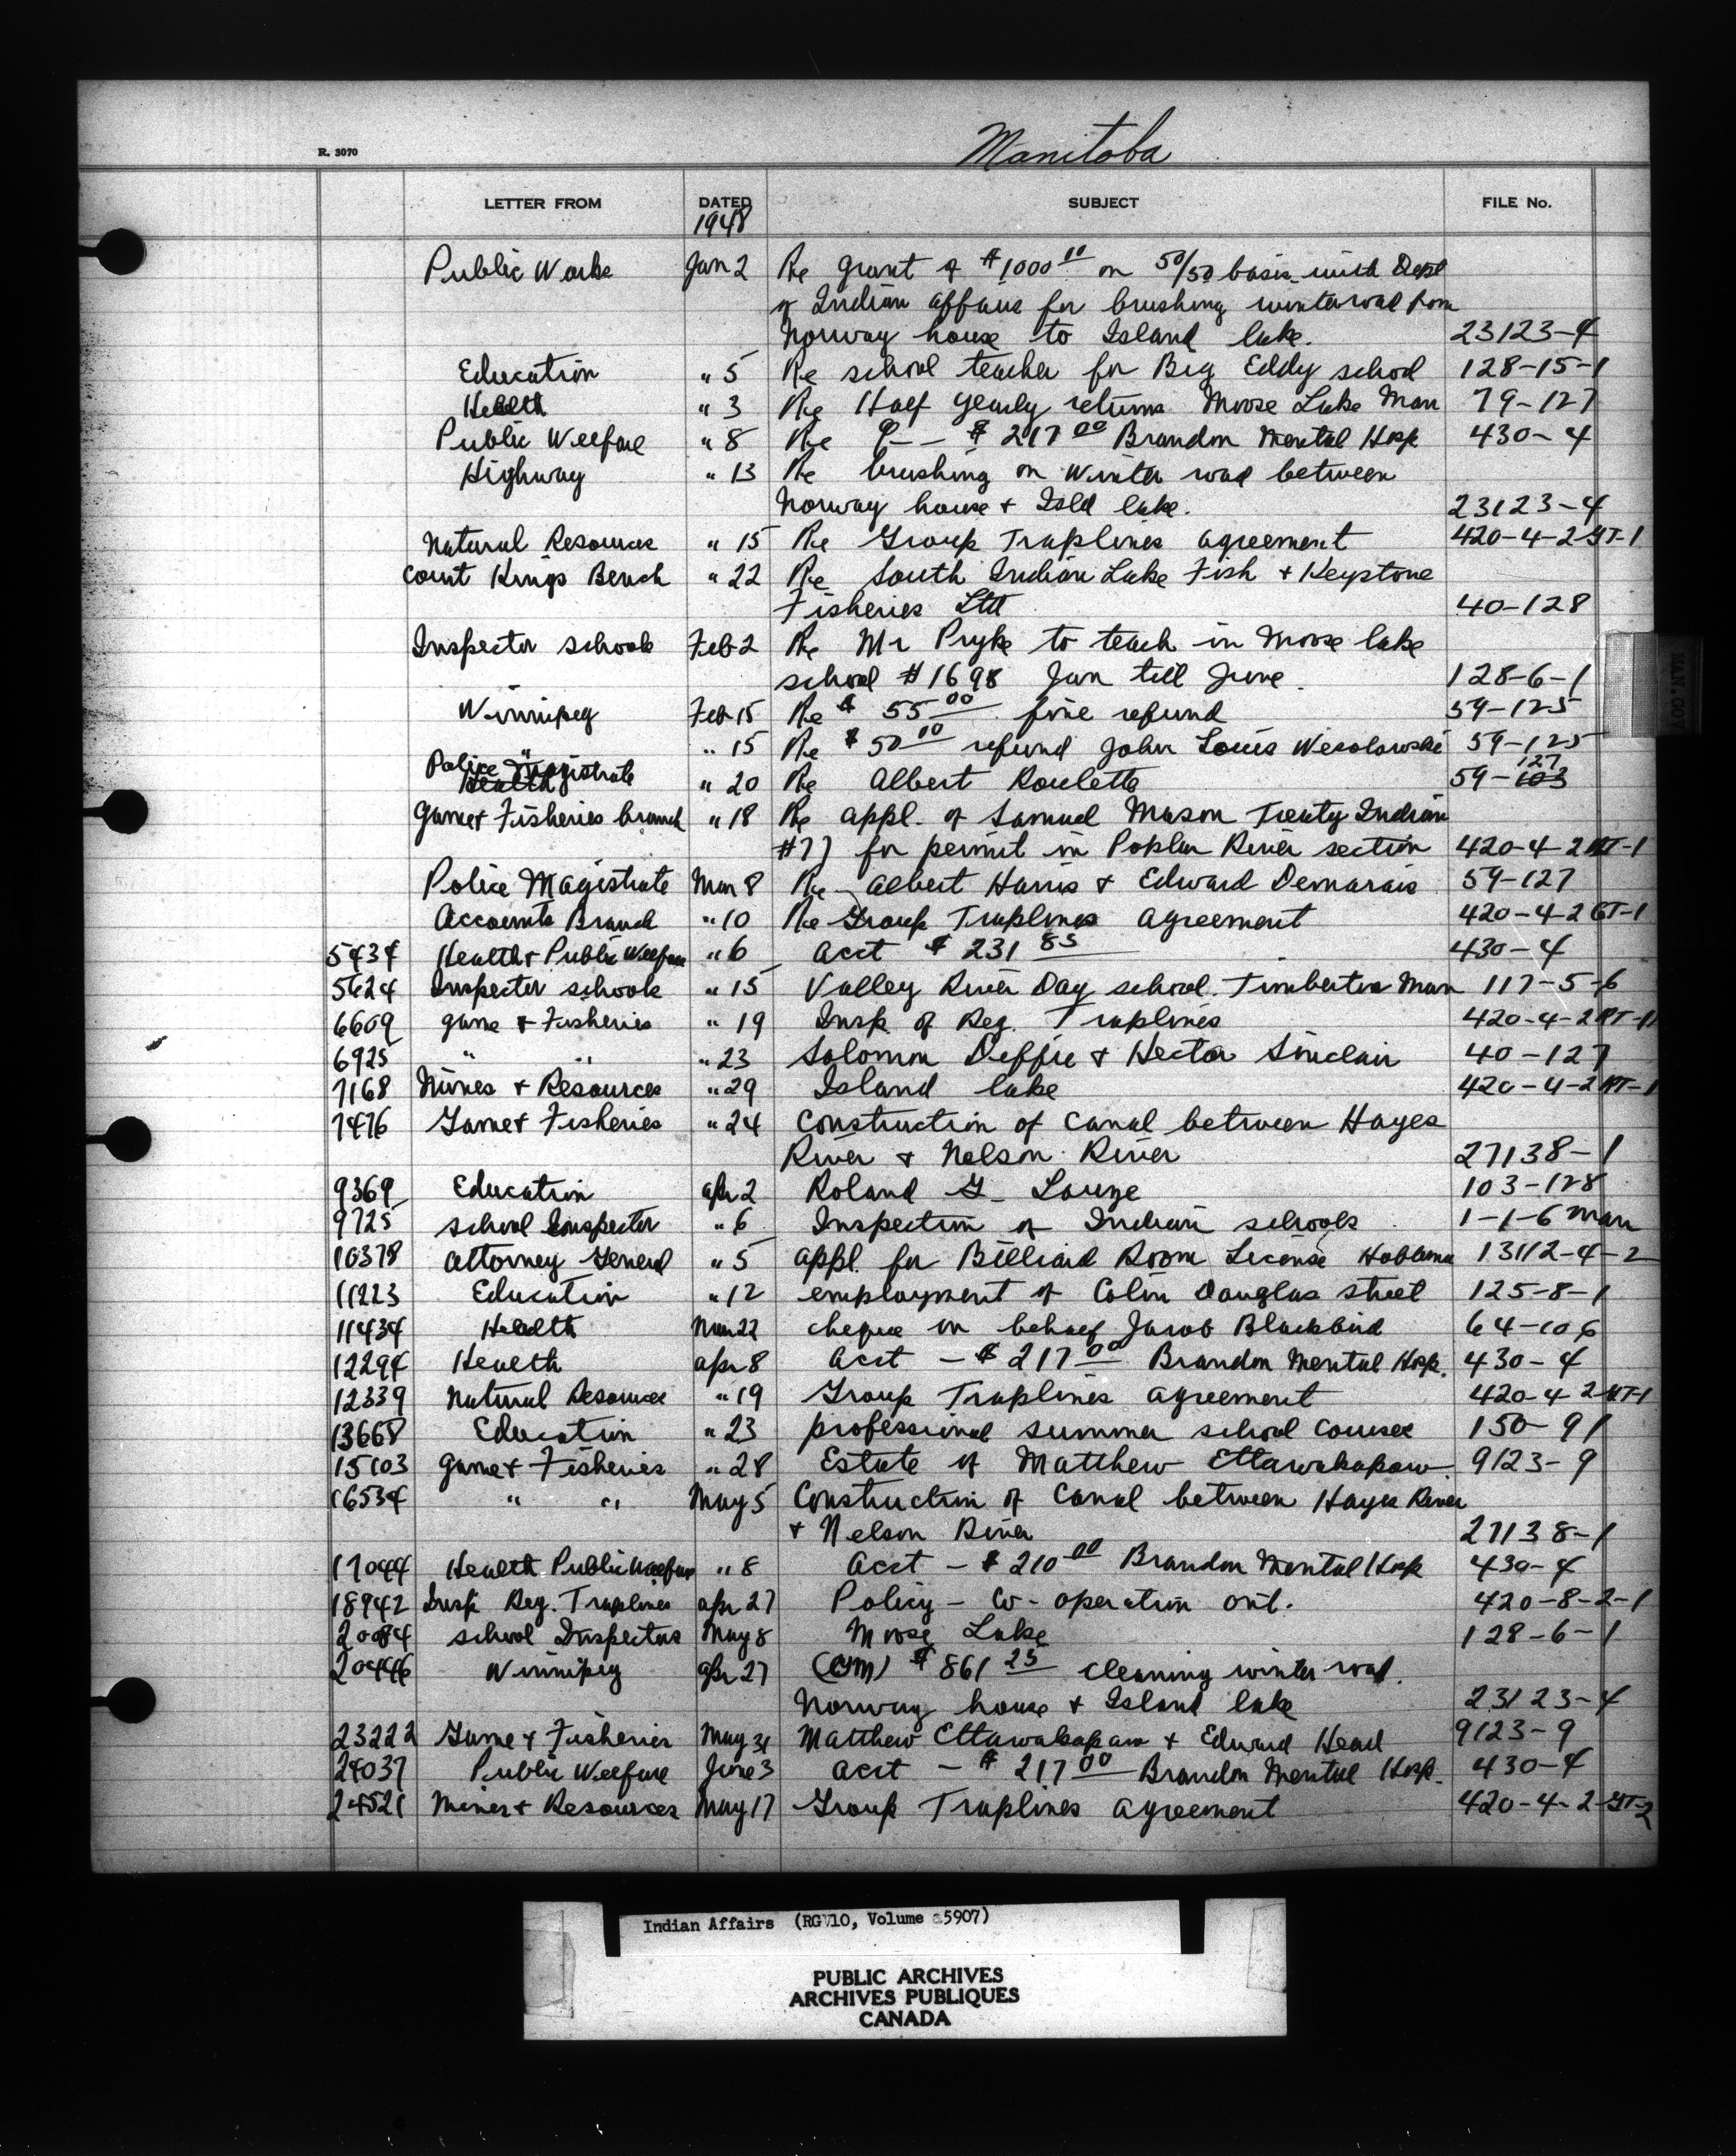 Manitoba
R. 3070
LETTER FROM DATED SUBJECT FILE No.
1948
Public Works Jan 2 Re grant of $1000 00 on 50/50 basis with Dept
of Indian affairs for brushing winter road from
Norway house to Island lake. 23123-4
Education " 5 Re school teacher for Big Eddy school 128-15-1
Health " 3 Re Half yearly returns Moose Lake Man 79-127
Public Welfare " 8 Re $ 217 00 Brandon Mental Hosp 430-4
Highway " 13 Re brushing on Winter road between
Norway house + Isld lake. 23123-4
Natural Resources " 15 Re Group Traplines agreement 420-4-2 GT-1
Court Kings Bench " 22 Re South Indian Lake Fish + Keystone
Fisheries Ltd 40-128
Inspector schools Feb 2 Re Mr Pryke to teach in Moose lake
school #1698 Jan till June. 128-6-1
Winnipeg Feb 15 Re $ 55 00 fine refund 59-125
" " 15 Re $ 50 00 refund John Louis Wesolowski 59-125
Police Magistrate " 20 Re Albert Roulette 59-127
Game + Fisheries branch " 18 Re appl. of Samuel Mason Treaty Indian
#77 for permit in Poplar River section 420-4-2 RT-1
Police Magistrate Mar 8 Re Albert Harris + Edward Demarais 59-127
Accounts Branch " 10 Re Group Traplines agreement 420-4-2 GT-1
5434 Health + Public Welfare " 6 acct $ 231 85 430-4
5624 Inspector schools " 15 Valley River Day school. Timberton Man 117-5-6
6609 game + Fisheries " 19 Insp. of Reg. Traplines 420-4-2 RT-1
6925 " " " 23 Solomon Deffie + Hector Sinclair 40-127
7168 Mines + Resources " 29 Island lake 420-4-2 RT-1
7476 Game + Fisheries " 24 Construction of Canal between Hayes
River + Nelson River 27138-1
9369 Education apr 2 Roland G. Lauze 103-128
9725 school Inspector " 6 Inspection of Indian schools 1-1-6 man
10378 attorney General " 5 appl. for Billiard Room License Hobbema 13112-4-2
11223 Education " 12 employment of Colin Douglas Street 125-8-1
11434 Health Mar 22 cheque on behalf Jacob Blackbird 64-106
12294 Health apr 8 acct - $ 217 00 Brandon Mental Hosp. 430-4
12339 Natural Resources " 19 Group Traplines agreement 420-4-2 GT-1
13668 Education " 23 professional summer school courses 150-91
15103 game + Fisheries " 28 Estate of Matthew Ettawakapow 9123-9
16534 " " May 5 Construction of Canal between Hayes River
+ Nelson River 27138-1
17044 Health Public Welfare " 8 acct - $ 210 00 Brandon Mental Hosp 430-4
18942 Insp. Reg. Traplines apr 27 Policy - Co-operation ont. 420-8-2-1
20084 school Inspectors May 8 Moose Lake 128-6-1
20446 Winnipeg apr 27 $ 861 25 cleaning winter road.
Norway house + Island lake 23123-4
23222 Game + Fisheries May 31 Matthew Ettawakapaw + Edward Head 9123-9
24037 Public Welfare June 3 acct - $ 217 00 Brandon Mental Hosp. 430-4
24521 Mines + Resources May 17 Group Traplines agreement 420-4-2-GT-2
MAN. GOV
Indian Affairs (RG 10, Volume 5907)
PUBLIC ARCHIVES
ARCHIVES PUBLIQUES
CANADA